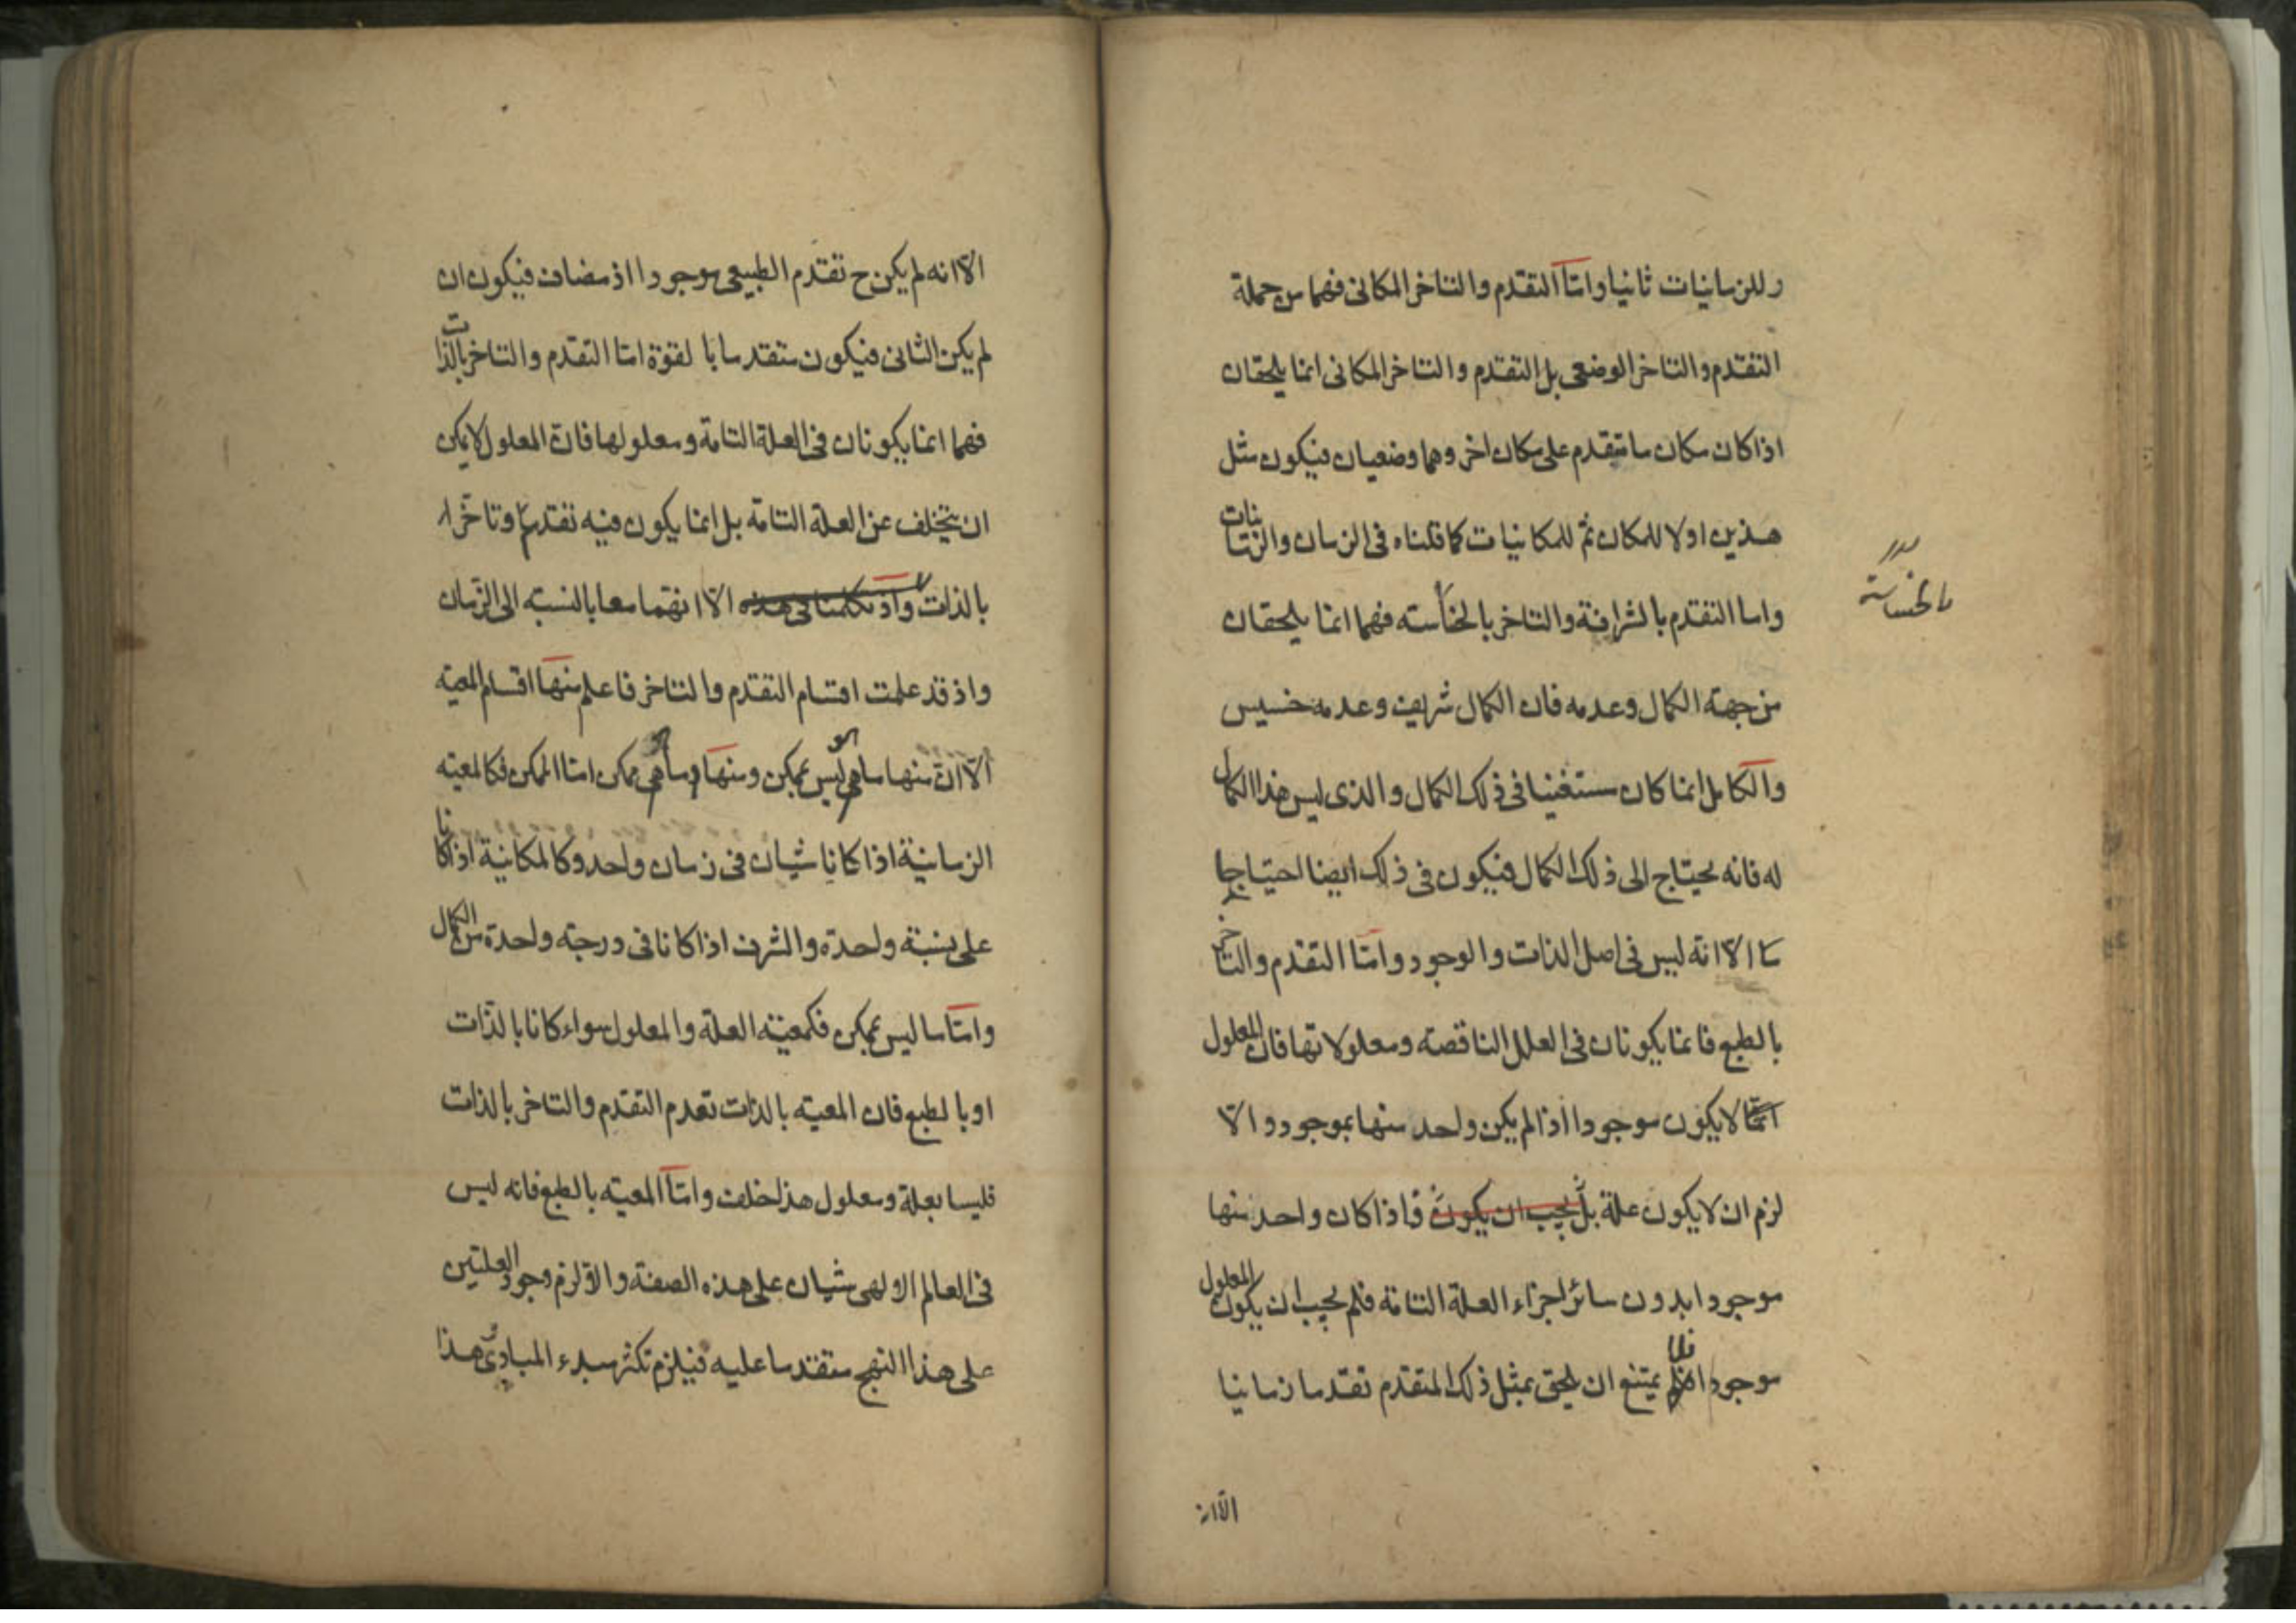 وللزمانيات ثانيا واما التقدم والتاخر المكانى فهما من جملة
التقدم والتاخر الوضعى بل التقدم والتاخر المكانى انما يلحقان
اذا كان مكان ما متقدم على مكان اخر وهما وضعيان فيكون مثل
هذين اولا للمكان ثم للمكانيات كما قلناه فى الزمان والزمانيات
واما التقدم بالشرافة والتاخر بالخساسته فهما انما يلحقان
بالخساسة
من جهة الكمال وعدمه فان الكمال شريف وعدمه خسيس
والكامل انما كان مستغنيا فى ذلك الكمال والذى ليس هذا الكمال
له فانه يحتاج الى ذلك الكمال فيكون فى ذلك ايضا احتياجا
ما الا انه ليس فى اصل الذات والوجود واما التقدم والتاخر
بالطبع فانما يكونان فى العلل الناقصة ومعلولاتها فان المعلول
انما لا يكون موجودا اذا لم يكن واحد منها بموجود والا
لزم ان لا يكون علة بل يجب ان يكون فاذا كان واحد منها
موجودا بدون سائر اجزاء العلة التامة فلم يجب ان يكون المعلول
موجودا فلا يمتنع ان يلحق بمثل ذلك المتقدم تقدما زمانيا
الا انه
الا انه لم يكن ح تقدم الطبيعى موجودا اذ مضاف فيكون ان
لم يكن الثانى فيكون متقدما بالقوة اما التقدم والتاخر بالذات
فهما انما يكونان فى العلة التامة ومعلولها فان المعلول لا يمكن
ان يتخلف عن العلة التامة بل انما يكون فيه تقدما وتاخرا
بالذات واذ تكلمنا فى هذه الا انهما معا بالنسبة الى الزمان
واذ قد علمت اقسام التقدم والتاخر فاعلم منها اقسام المعية
الا ان منها ما هو ليس بممكن ومنها وما هو ممكن اما الممكن فكالمعية
الزمانية اذا كانا شيئان فى زمان واحد وكالمكانية اذا كانا
على نسبة واحدة والشرف اذا كانا فى درجة واحدة من الكمال
واما ما ليس بممكن فكمعية العلة والمعلول سواء كانا بالذات
او بالطبع فان المعية بالذات تعدم التقدم والتاخر بالذات
فليسا بعلة ومعلول هذا خلف واما المعية بالطبع فانه ليس
فى العالم الالهى شيئان على هذه الصفة والا لزم وجود العلتين
على هذا النهج متقدما عليه فيلزم تكثر مبدء المبادئ هذا